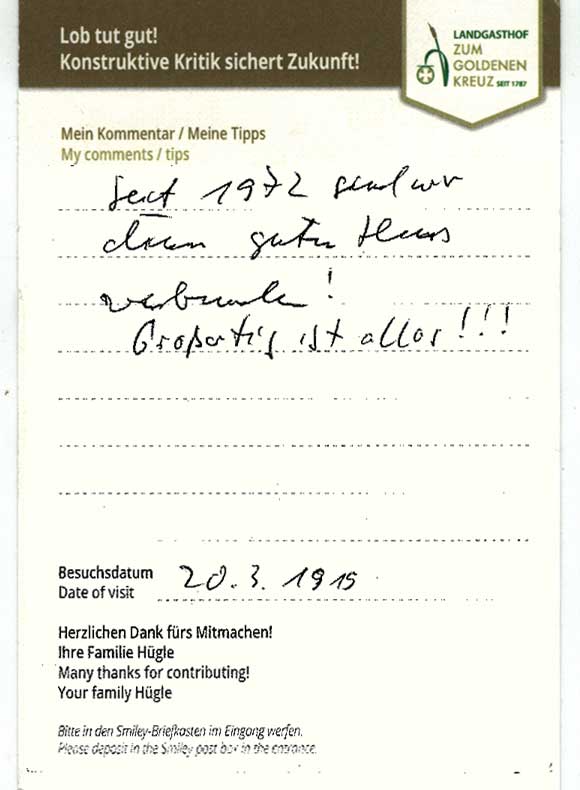 Lob tut gut!
Konstruktive Kritik sichert Zukunft!
LANDGASTHOF
ZUM
GOLDENEN
KREUZ SEIT 1787
Mein Kommentar / Meine Tipps
My comments / tips
Seit 1972 sind wir
dem guten Haus
verbunden!
Großartig ist alles!!!
Besuchsdatum
Date of visit
20.3.1915
Herzlichen Dank fürs Mitmachen!
Ihre Familie Hügle
Many thanks for contributing!
Your family Hügle
Bitte in den Smiley-Briefkasten im Eingang werfen.
Please deposit in the Smiley post box in the entrance.